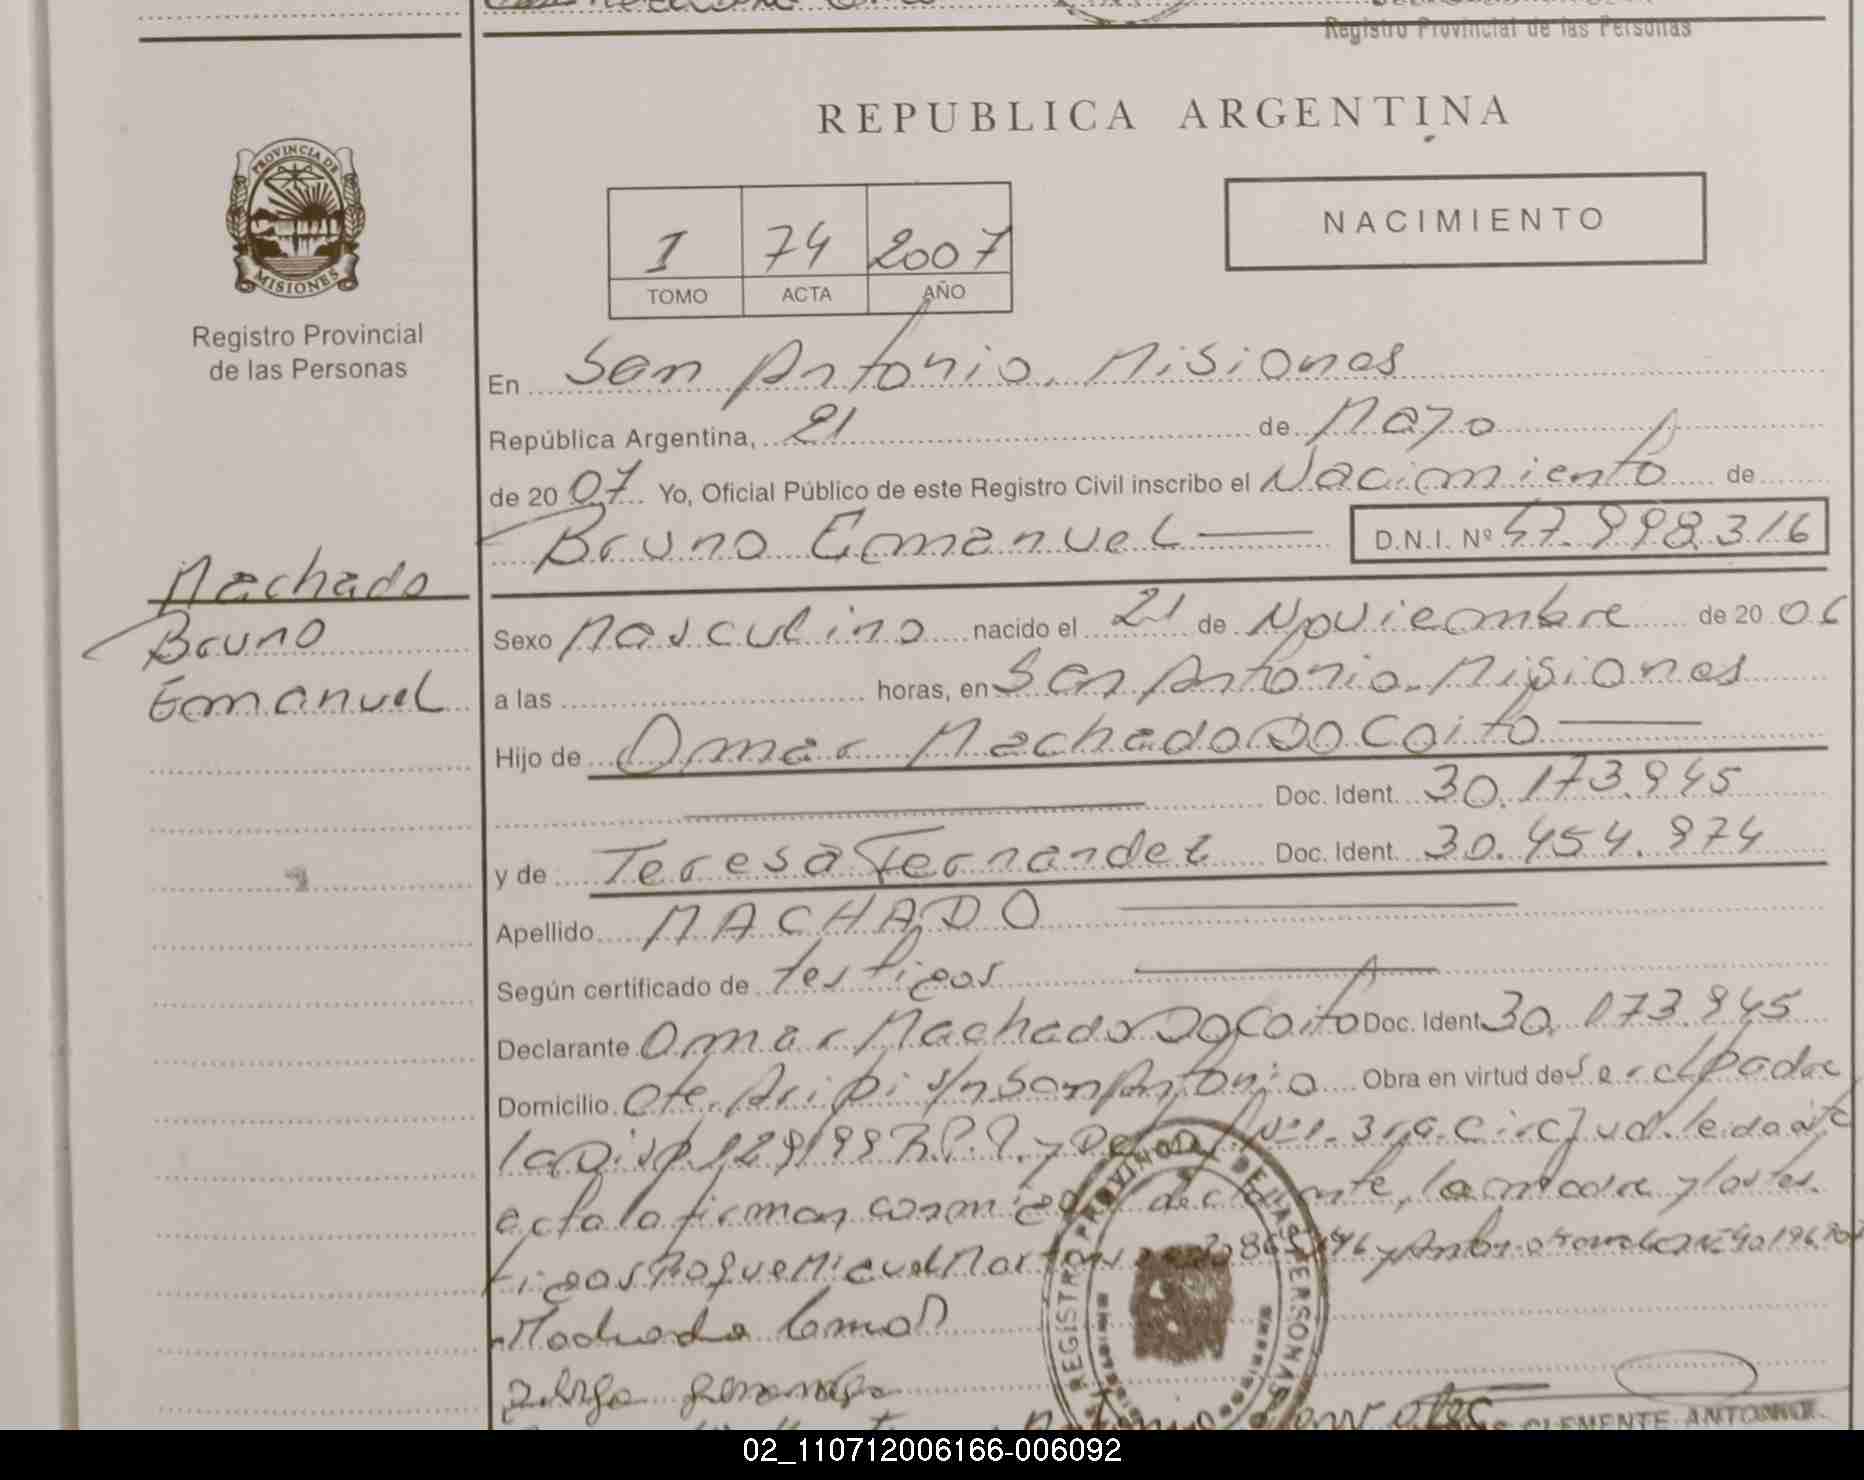 Registro Provincial de las Personas
REPUBLICA ARGENTINA
PROVINCIA DE
MISIONES
Registro Provincial
de las Personas
I 74 2007
TOMO ACTA AÑO
NACIMIENTO
En San Antonio. Misiones
República Argentina, 21 de Mayo
de 2007 Yo, Oficial Público de este Registro Civil inscribo el Nacimiento de
Bruno Emanuel D.N.I. Nº 47.998.316
Machado
Bruno
Emanuel
Sexo Masculino nacido el 21 de Noviembre de 2006
a las horas, en San Antonio. Misiones
Hijo de Omar Machado Do Coito
Doc. Ident. 30.173.945
y de Teresa Fernandez Doc. Ident. 30.454.974
Apellido MACHADO
Según certificado de testigos
Declarante Omar Machado Do Coito Doc. Ident. 30.173.945
Domicilio Cte. Aripi s/n San Antonio Obra en virtud de ser el padre
la Disp. 129/99 R.P.P. y De Nº1. 3ra. Circ. Jud. leida
acta la firman conmigo declarante, la madre y los tes.
tigos Roque Miguel
Machado Omar
REGISTRO PROVINCIAL DE LAS PERSONAS
CLEMENTE ANTONIO
02_110712006166-006092